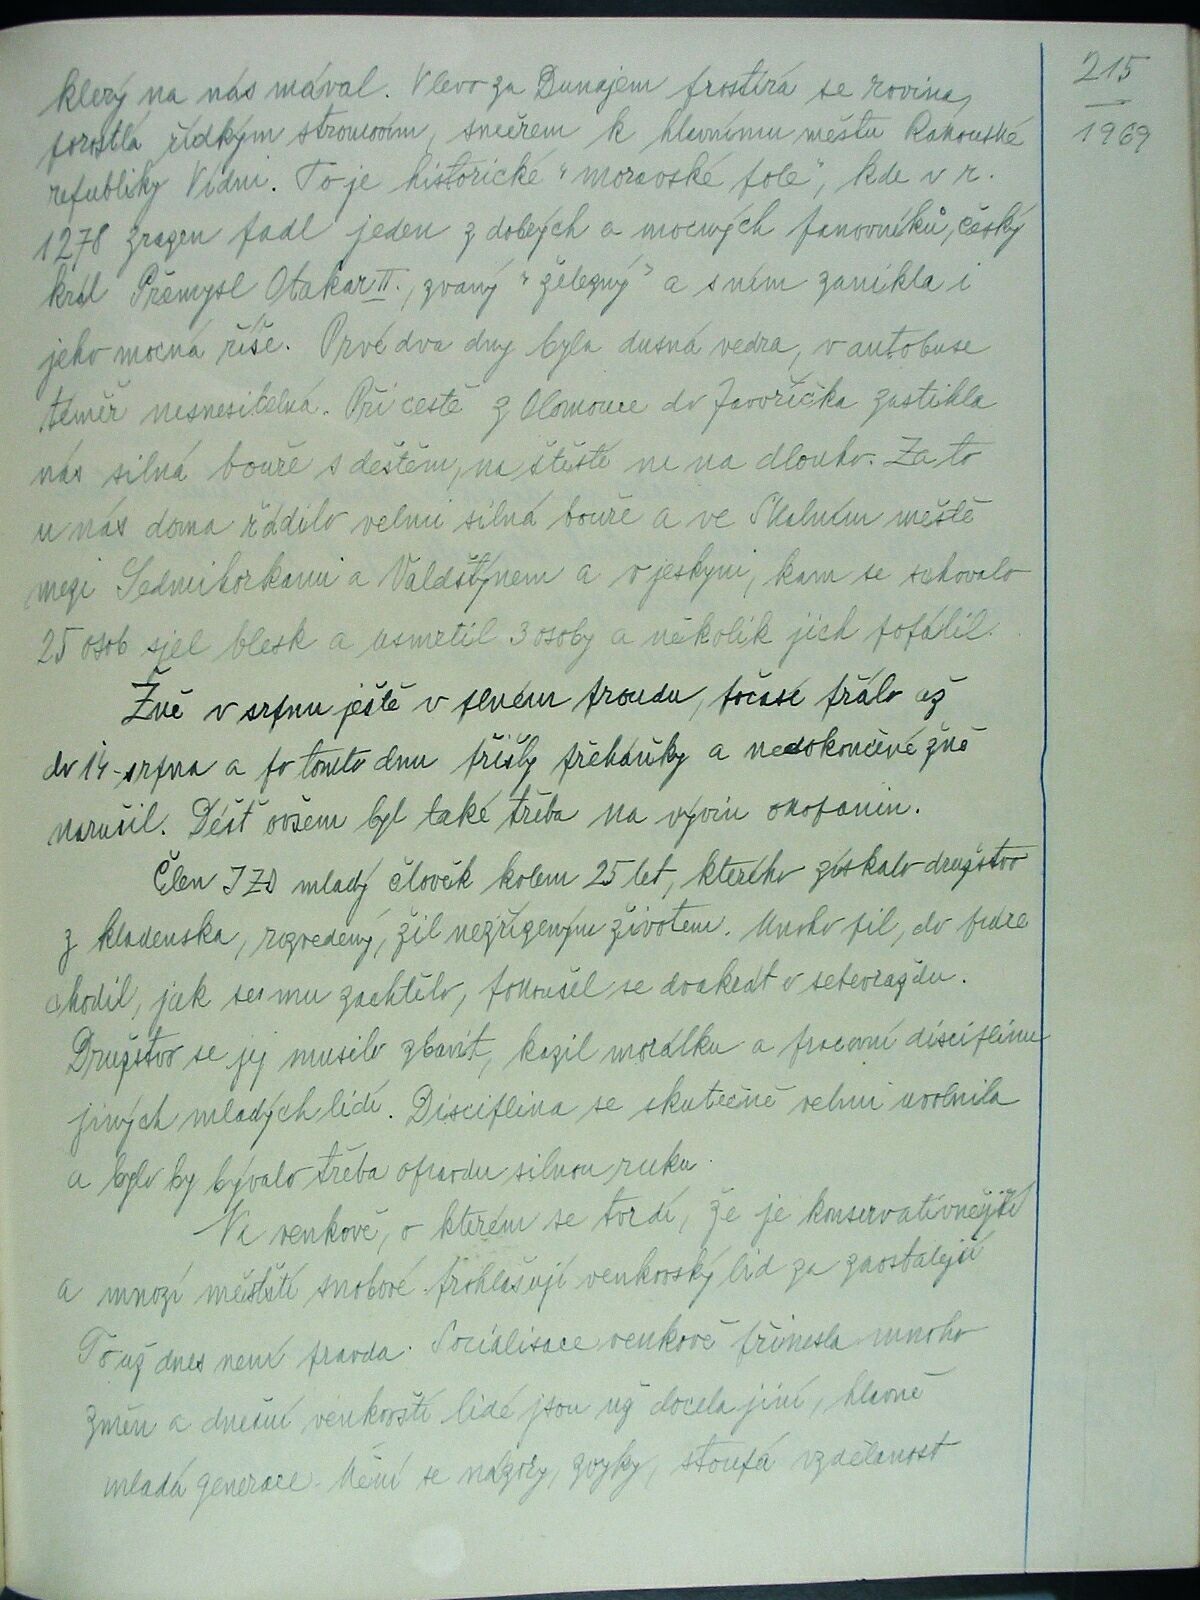 215
1969
který na nás mával. Vlevo za Dunajem prostírá se rovina,
porostlá řídkým stromovím, směrem k hlavnímu městu Rakouské
republiky Vídni. To je historické "moravské pole", kde v r.
1278 zrazen padl jeden z dobrých a mocných panovníků, český
král Přemysl Otakar II., zvaný "železný" a s ním zanikla i
jeho mocná říše. Prvé dva dny byla dusná vedra, v autobuse
téměř nesnesitelná. Při cestě z Olomouce do Javoříčka zastihla
nás silná bouře s deštěm, na štěstí ne na dlouho. Za to
u nás doma řádila velmi silná bouře a ve Skalním městě
mezi Sedmihorkami a Valdštýnem a v jeskyni, kam se schovalo
25 osob sjel blesk a usmrtil 3 osoby a několik jich popálil.
Žně v srpnu ještě v plném proudu, počasí přálo až
do 14. srpna a po tomto dnu přišly přeháňky a nedokončené žně
narušil. Déšť ovšem byl také třeba na vývin okopanin.
Člen JZD mladý člověk kolem 25 let, kterého získalo družstvo
z kladenska, rozvedený, žil nezřízeným životem. Mnoho pil, do práce
chodil, jak se mu zachtělo, pokoušel se dvakrát o sebevraždu.
Družstvo se jej musilo zbavit, kazil morálku a pracovní disciplinu
jiných mladých lidí. Disciplina se skutečně velmi uvolnila
a bylo by bývalo třeba opravdu silnou ruku.
Na venkově, o kterém se tvrdí, že je konservativnější
a mnozí městští snobové prohlašují venkovský lid za zaostalejší
To už dnes není pravda. Socialisace venkově přinesla mnoho
změn a dnešní venkovští lidé jsou už docela jiní, hlavně
mladá generace. Mění se názory, zvyky, stoupá vzdělanost